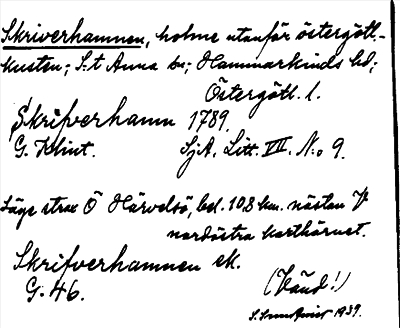 Skriverhamnen, holme utanför östergötl.-
kusten; S:t Anna sn; Hammarkinds hd;
Östergötl. l.
Skrifverhamn 1789.
G. Klint. SjA. Litt. VII. No 9.
Läge strax Ö Härvelsö, bel. 10,8 km. nästan V
nordöstra karthörnet.
Skrifverhamnen ek.
G. 46. (Vänd!)
1939.